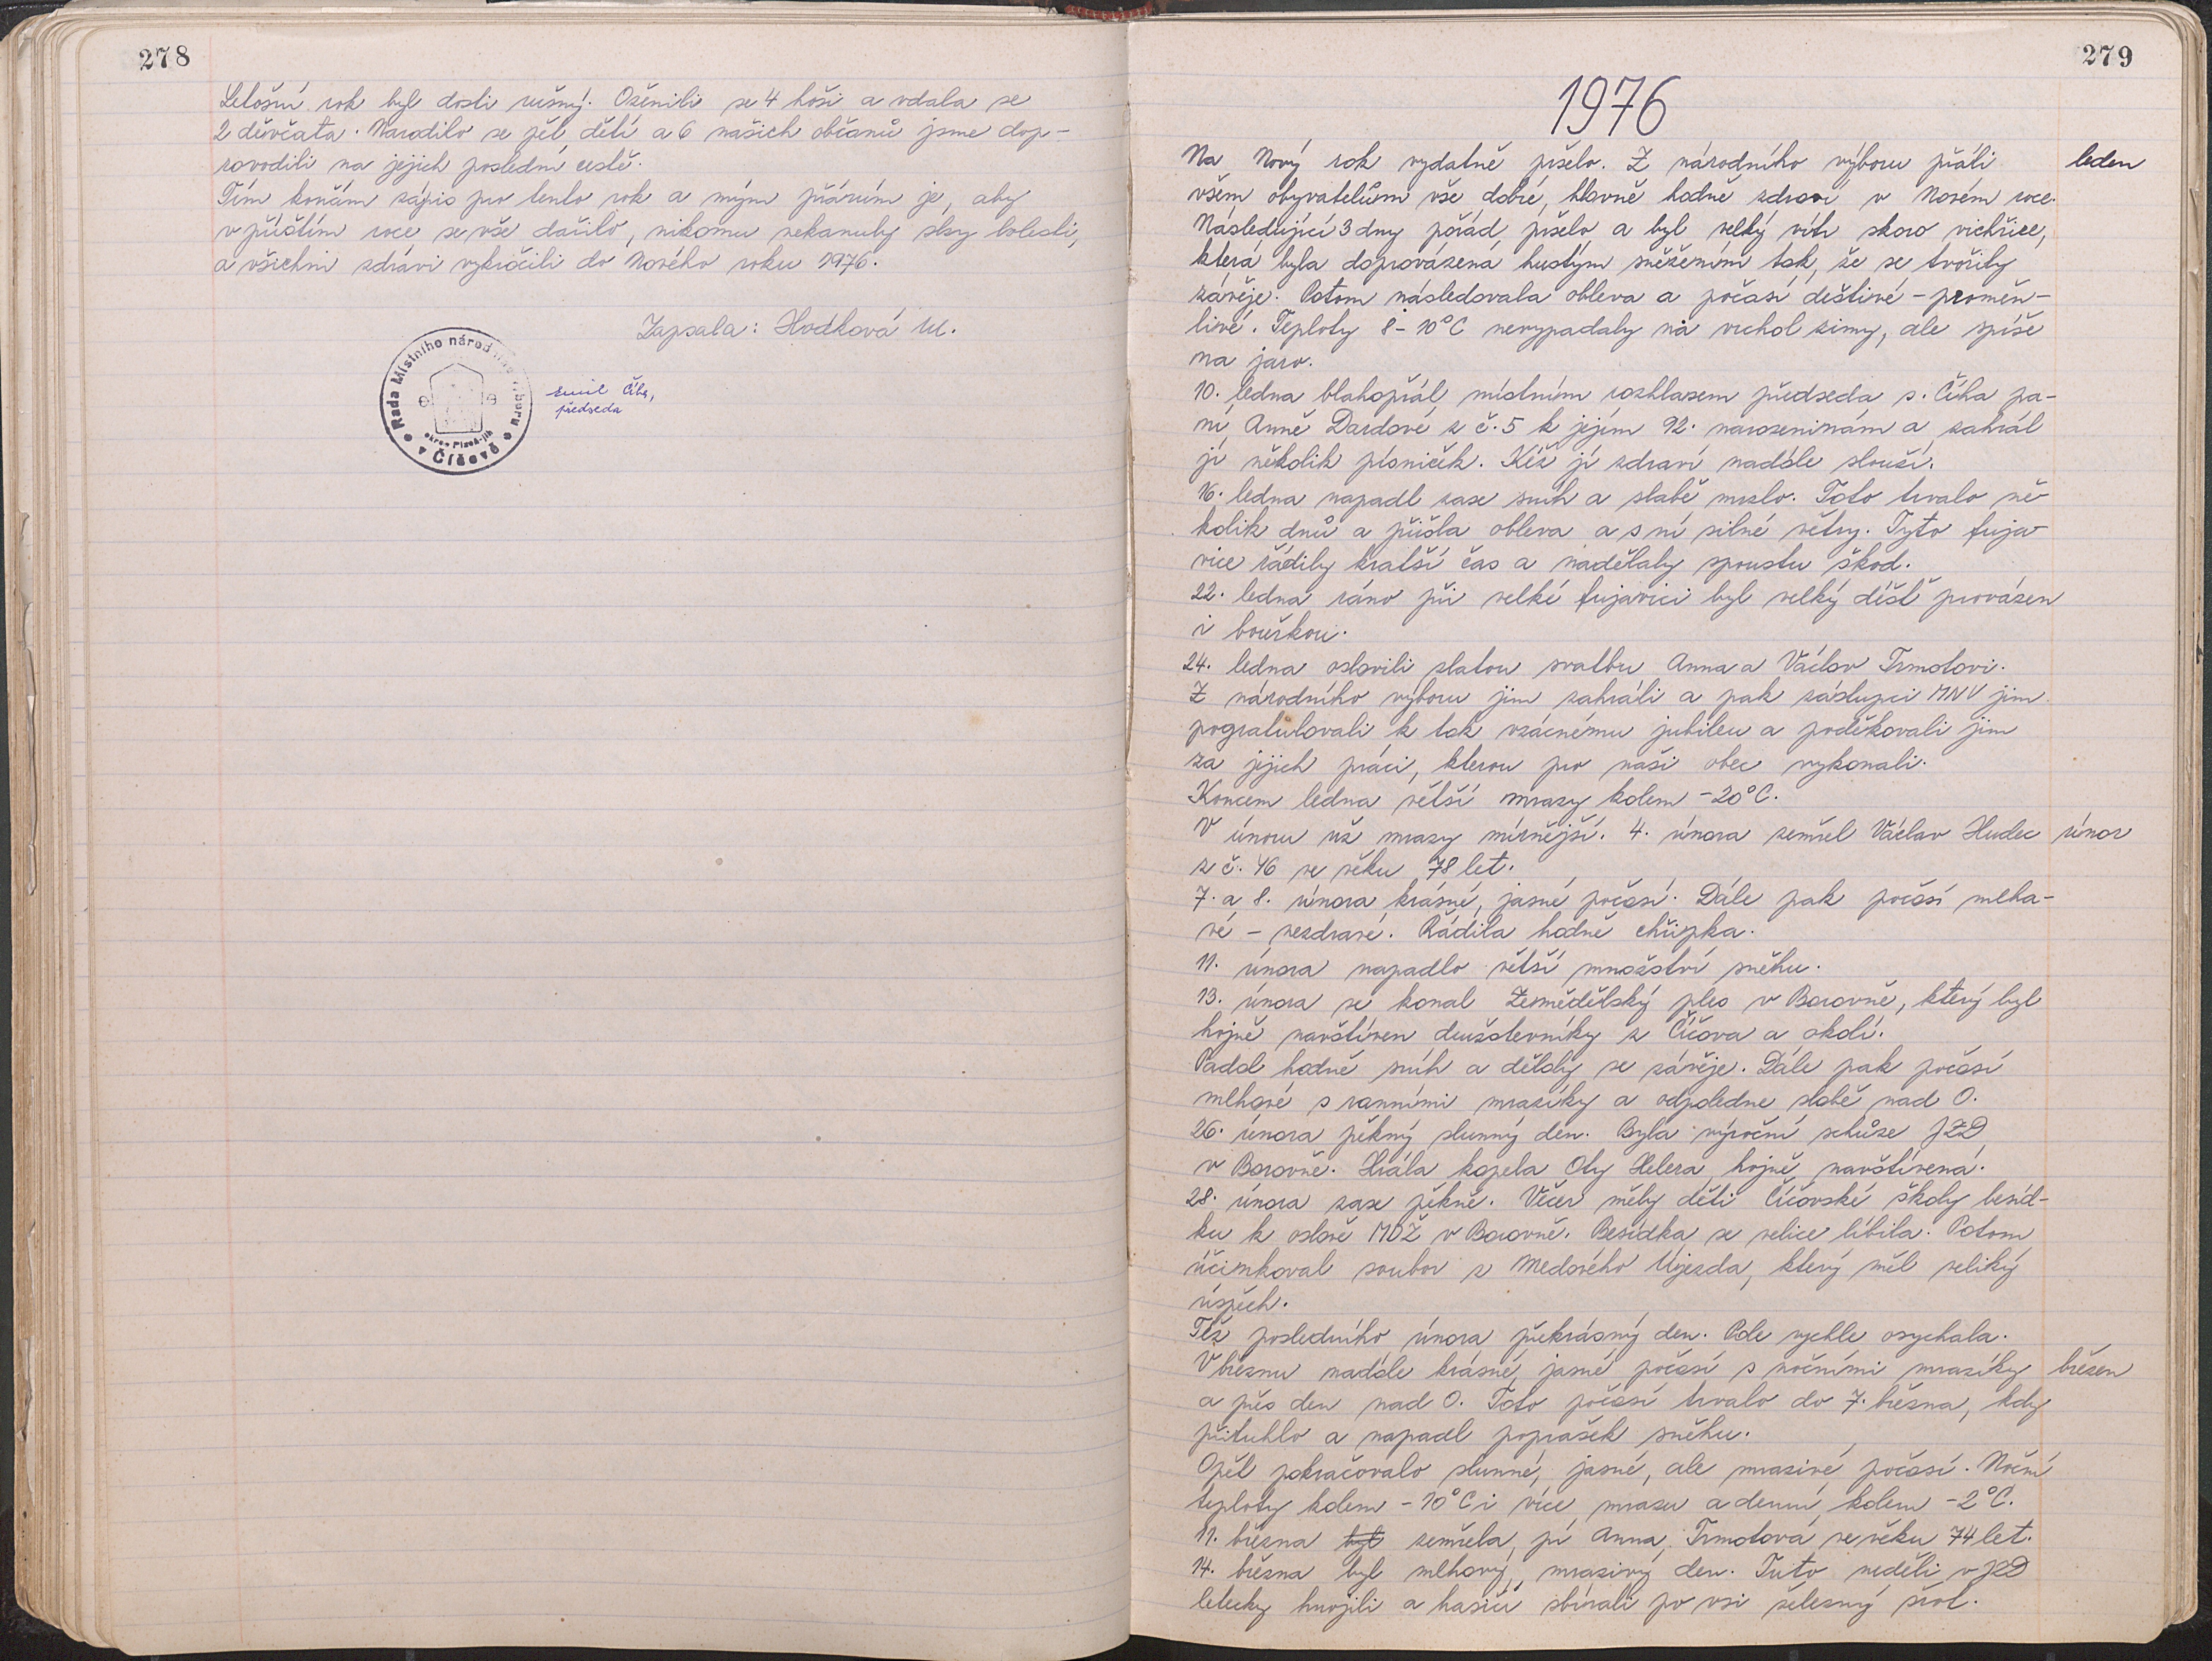 278
Letošní rok byl dosti rušný. Oženili se 4 hoši a vdala se
2 děvčata. Narodilo se pět dětí a 6 našich občanů jsme dop-
rovodili na jejich poslední cestě.
Tím končím zápis pro tento rok a mým přáním je, aby
v příštím roce se vše dařilo, nikomu nekanuly slzy bolesti,
a všichni zdrávi vykročili do Nového roku 1976.
Zapsala: Hodková M.
Rada Místního národního výboru
okres Plzeň-jih
v Číčově
Emil Číha,
předseda
279
1976
Na Nový rok vydatně pršelo. Z národního výboru přáli leden
všem obyvatelům vše dobré, hlavně hodně zdraví v Novém roce.
Následující 3 dny pořád pršelo a byl velký vítr skoro vichřice,
která byla doprovázena hustým sněžením tak, že se tvořily
závěje. Potom následovala obleva a počasí deštivé - proměn-
livé. Teploty 8-10°C nevypadaly na vrchol zimy, ale spíše
na jaro.
10. ledna blahopřál místním rozhlasem předseda s. Číha pa-
ní Anně Dardové z č. 5 k jejím 92. narozeninám a zahrál
jí několik písniček. Kéž jí zdraví nadále slouží.
16. ledna napadl zase sníh a slabě mrzlo. Toto trvalo ně-
kolik dnů a přišla obleva a s ní silné větry. Tyto fuja-
vice řádily kratší čas a nadělaly spoustu škod.
22. ledna ráno při velké fujavici byl velký déšť provázen
i bouřkou.
24. ledna oslavili zlatou svatbu Anna a Václav Trmotovi.
Z národního výboru jim zahráli a pak zástupci MNV jim
pogratulovali k tak vzácnému jubileu a poděkovali jim
za jejich práci, kterou pro naši obec vykonali.
Koncem ledna větší mrazy kolem -20°C.
V únoru už mrazy mírnější. 4. února zemřel Václav Hudec únor
z č. 46 ve věku 78 let.
7. a 8. února krásné, jasné počasí. Dále pak počasí mlha-
vé - nezdravé. Řádila hodně chřipka.
11. února napadlo větší množství sněhu.
13. února se konal Zemědělský ples v Borovně, který byl
hojně navštíven družstevníky z Číčova a okolí.
Padal hodně sníh a dělaly se závěje. Dále pak počasí
mlhavé s ranními mrazíky a odpoledne slabě nad 0.
26. února pěkný slunný den. Byla výroční schůze JZD
v Borovně. Hrála kapela Oty Helera, hojně navštívená.
28. února zase pěkně. Večer měly děti Číčovské školy besíd-
ku k oslavě MDŽ v Borovně. Besídka se velice líbila. Potom
účinkoval soubor z Medového Újezda, který měl veliký
úspěch.
Též posledního února překrásný den. Pole rychle osychala.
V březnu nadále krásné, jasné počasí s nočními mrazíky březen
a přes den nad 0. Toto počasí trvalo do 7. března, kdy
přituhlo a napadl poprašek sněhu.
Opět pokračovalo slunné, jasné, ale mrazivé počasí. Noční
teploty kolem -10°C i více mrazu a denní kolem -2°C.
11. března byl zemřela pí Anna Trmotová ve věku 74 let.
14. března byl mlhavý, mrazivý den. Tuto neděli v JZD
letecky hnojili a hasiči sbírali po vsi železný šrot.